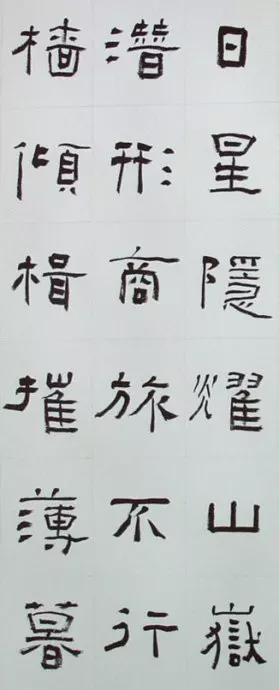 日星隱燿山嶽
潛形商旅不行
檣傾楫摧薄暮